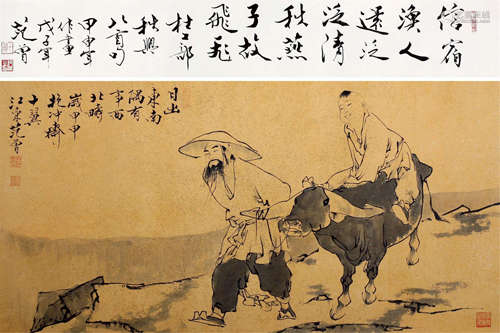 信宿
漁人
還泛
泛清
秋燕
子故
飛飛
杜工部
秋興
八首句
甲申年
作畫
戊子年
范曾
日出
東南
隅有
事西
北疇
歲甲申
抱沖齋
十翼
江東范曾